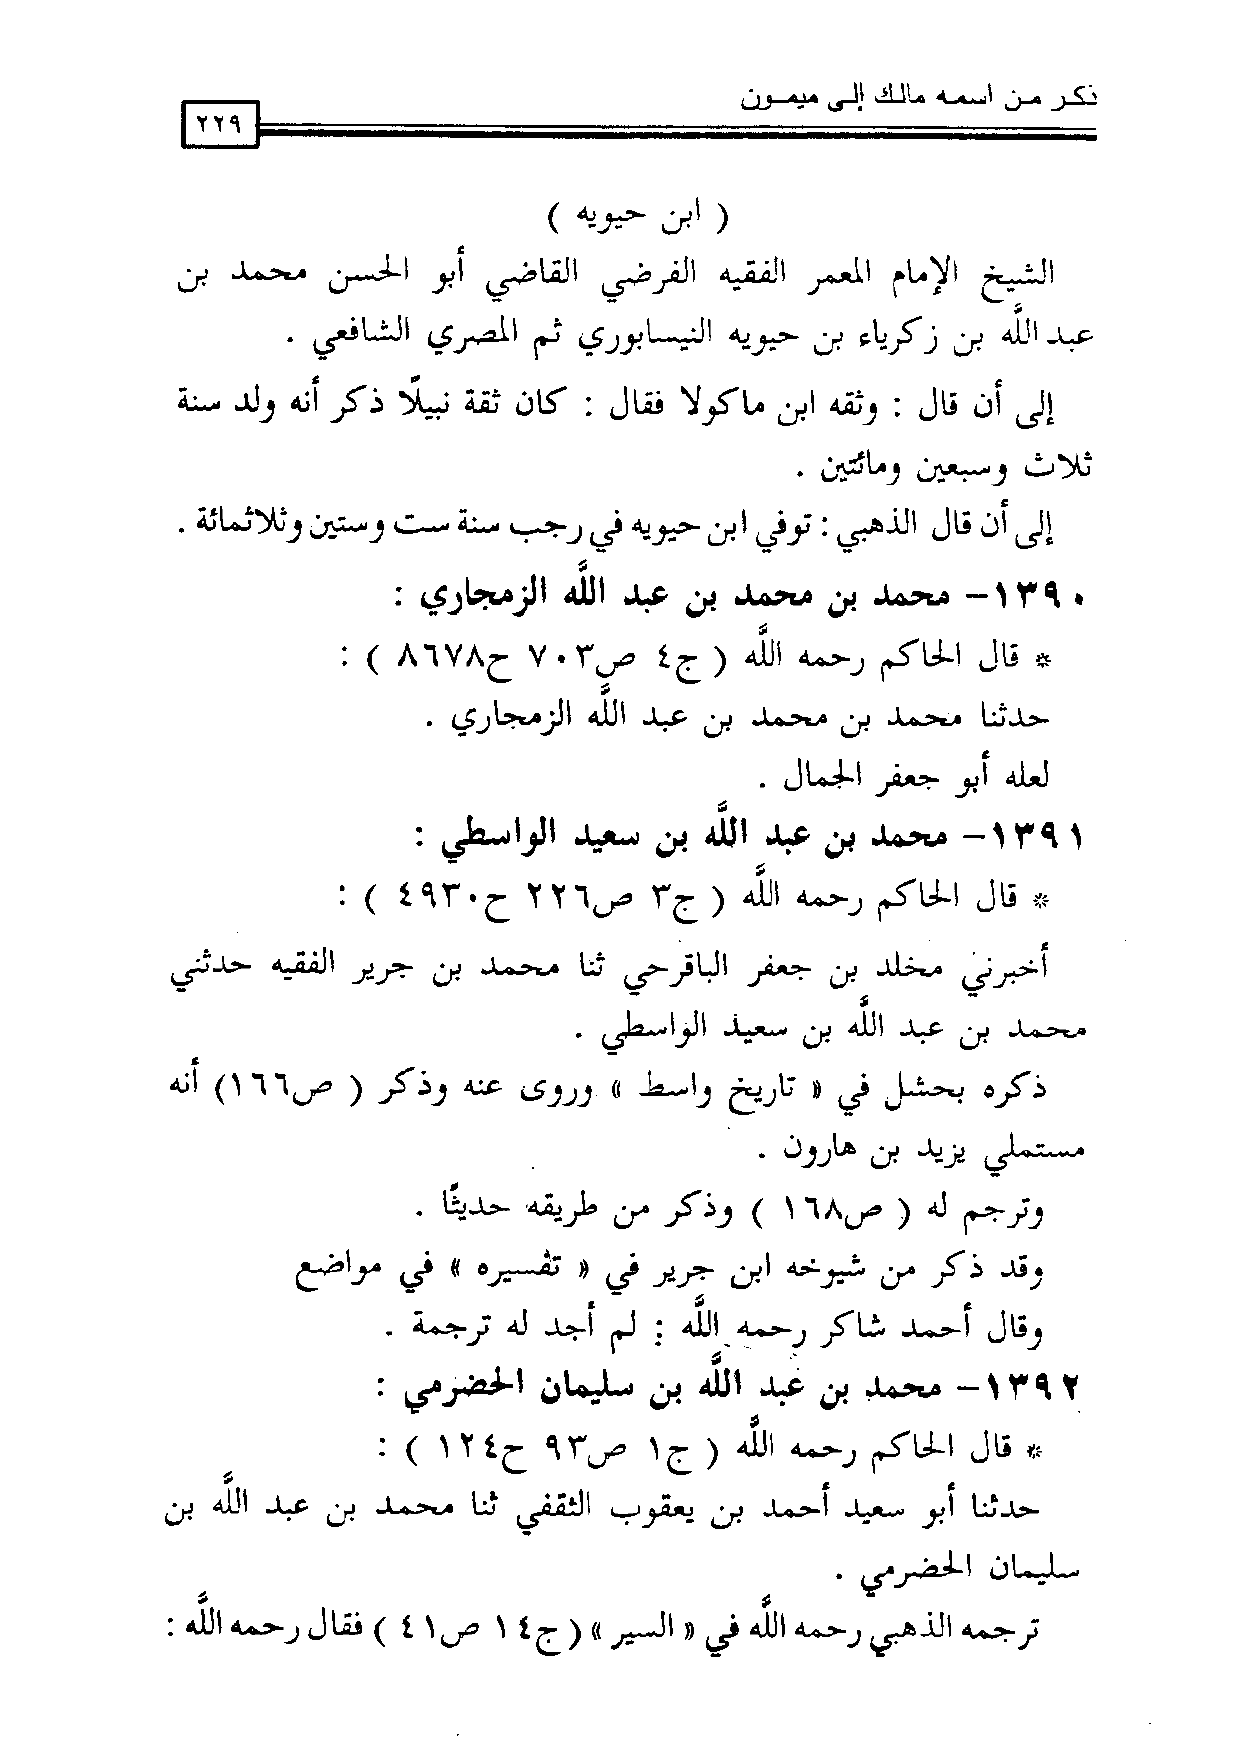 ذكر من اسمه مالك إلى ميمون
٢٢٩
( ابن حيويه )
الشيخ الإمام المعمر الفقيه الفرضي القاضي أبو الحسن محمد بن
عبد اللَّه بن زكرياء بن حيويه النيسابوري ثم المصري الشافعي .
إلى أن قال : وثقه ابن ماكولا فقال : كان ثقة نبيلًا ذكر أنه ولد سنة
ثلاث وسبعين ومائتين .
إلى أن قال الذهبي : توفي ابن حيويه في رجب سنة ست وستين وثلاثمائة .
١٣٩٠- محمد بن محمد بن عبد اللَّه الزمجاري :
* قال الحاكم رحمه اللَّه ( ج٤ ص٧٠٣ ح٨٦٧٨ ) :
حدثنا محمد بن محمد بن عبد اللَّه الزمجاري .
لعله أبو جعفر الجمال .
١٣٩١- محمد بن عبد اللَّه بن سعيد الواسطي :
* قال الحاكم رحمه اللَّه ( ج٣ ص٢٢٦ ح٤٩٣٠ ) :
أخبرني مخلد بن جعفر الباقرحي ثنا محمد بن جرير الفقيه حدثني
محمد بن عبد اللَّه بن سعيد الواسطي .
ذكره بحشل في « تاريخ واسط » وروى عنه وذكر ( ص١٦٦) أنه
مستملي يزيد بن هارون .
وترجم له ( ص١٦٨ ) وذكر من طريقه حديثًا .
وقد ذكر من شيوخه ابن جرير في « تفسيره » في مواضع
وقال أحمد شاكر رحمه اللَّه : لم أجد له ترجمة .
١٣٩٢- محمد بن عبد اللَّه بن سليمان الحضرمي :
* قال الحاكم رحمه اللَّه ( ج١ ص٩٣ ح١٢٤ ) :
حدثنا أبو سعيد أحمد بن يعقوب الثقفي ثنا محمد بن عبد اللَّه بن
سليمان الحضرمي .
ترجمه الذهبي رحمه اللَّه في « السير » ( ج١٤ ص٤١ ) فقال رحمه اللَّه :